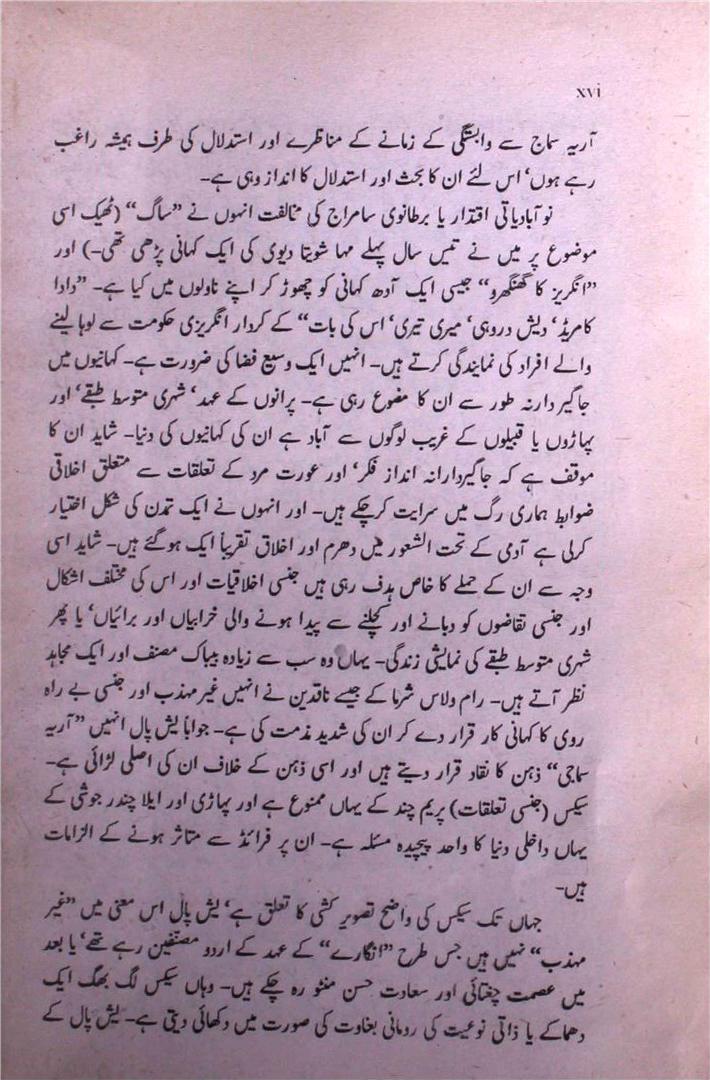 xvi
آریہ سماج سے وابستگی کے زمانے کے مناظرے اور استدلال کی طرف ہمیشہ راغب
رہے ہوں‘ اس لئے ان کا بحث اور استدلال کا انداز وہی ہے۔
نو آبادیاتی اقتدار یا برطانوی سامراج کی مخالفت انہوں نے ”ساگ“ (ٹھیک اسی
موضوع پر میں نے تیس سال پہلے مہا شویتا دیوی کی ایک کہانی پڑھی تھی۔) اور
”انگریز کا گھنگھرو“ جیسی ایک آدھ کہانی کو چھوڑ کر اپنے ناولوں میں کیا ہے۔ ”دادا
کامریڈ‘ دیش دروہی‘ میری تیری‘ اس کی بات“ کے کردار انگریزی حکومت سے لوہا لینے
والے افراد کی نمایندگی کرتے ہیں۔ انہیں ایک وسیع فضا کی ضرورت ہے۔ کہانیوں میں
جاگیردارنہ طور سے ان کا مضوع رہی ہے۔ پرانوں کے عہد‘ شہری متوسط طبقے‘ اور
پہاڑوں یا قبیلوں کے غریب لوگوں سے آباد ہے ان کی کہانیوں کی دنیا۔ شاید ان کا
موقف ہے کہ جاگیردارانہ انداز فکر‘ اور عورت مرد کے تعلقات سے متعلق اخلاقی
ضوابط ہماری رگ میں سرایت کرچکے ہیں۔ اور انہوں نے ایک تمدن کی شکل اختیار
کرلی ہے آدمی کے تحت الشعور میں دھرم اور اخلاق تقریباً ایک ہوگئے ہیں۔ شاید اسی
وجہ سے ان کے حملے کا خاص ہدف رہی ہیں جنسی اخلاقیات اور اس کی مختلف اشکال
اور جنسی تقاضوں کو دبانے اور کچلنے سے پیدا ہونے والی خرابیاں اور برائیاں‘ یا پھر
شہری متوسط طبقے کی نمایشی زندگی۔ یہاں وہ سب سے زیادہ بیباک مصنف اور ایک مجاہد
نظر آتے ہیں۔ رام ولاس شرما کے جیسے ناقدین نے انہیں غیر مہذب اور جنسی بے راہ
روی کا کہانی کار قرار دے کر ان کی شدید مذمت کی ہے۔ جواباً یش پال انہیں ”آریہ
سماجی“ ذہن کا نقاد قرار دیتے ہیں اور اسی ذہن کے خلاف ان کی اصلی لڑائی ہے۔
سیکس (جنسی تعلقات) پریم چند کے یہاں ممنوع ہے اور پہاڑی اور ایلا چندر جوشی کے
یہاں داخلی دنیا کا واحد پیچیدہ مسئلہ ہے۔ ان پر فرائڈ سے متاثر ہونے کے الزامات
ہیں۔
جہاں تک سیکس کی واضح تصویر کشی کا تعلق ہے‘ یش پال اس معنی میں ”غیر
مہذب“ نہیں ہیں جس طرح ”انگارے“ کے عہد کے اردو مصنّفین رہے تھے‘ یا بعد
میں عصمت چغتائی اور سعادت حسن منٹو رہ چکے ہیں۔ وہاں سیکس لگ بھگ ایک
دھماکے یا ذاتی نوعیت کی رومانی بغاوت کی صورت میں دکھائی دیتی ہے۔ یش پال کے